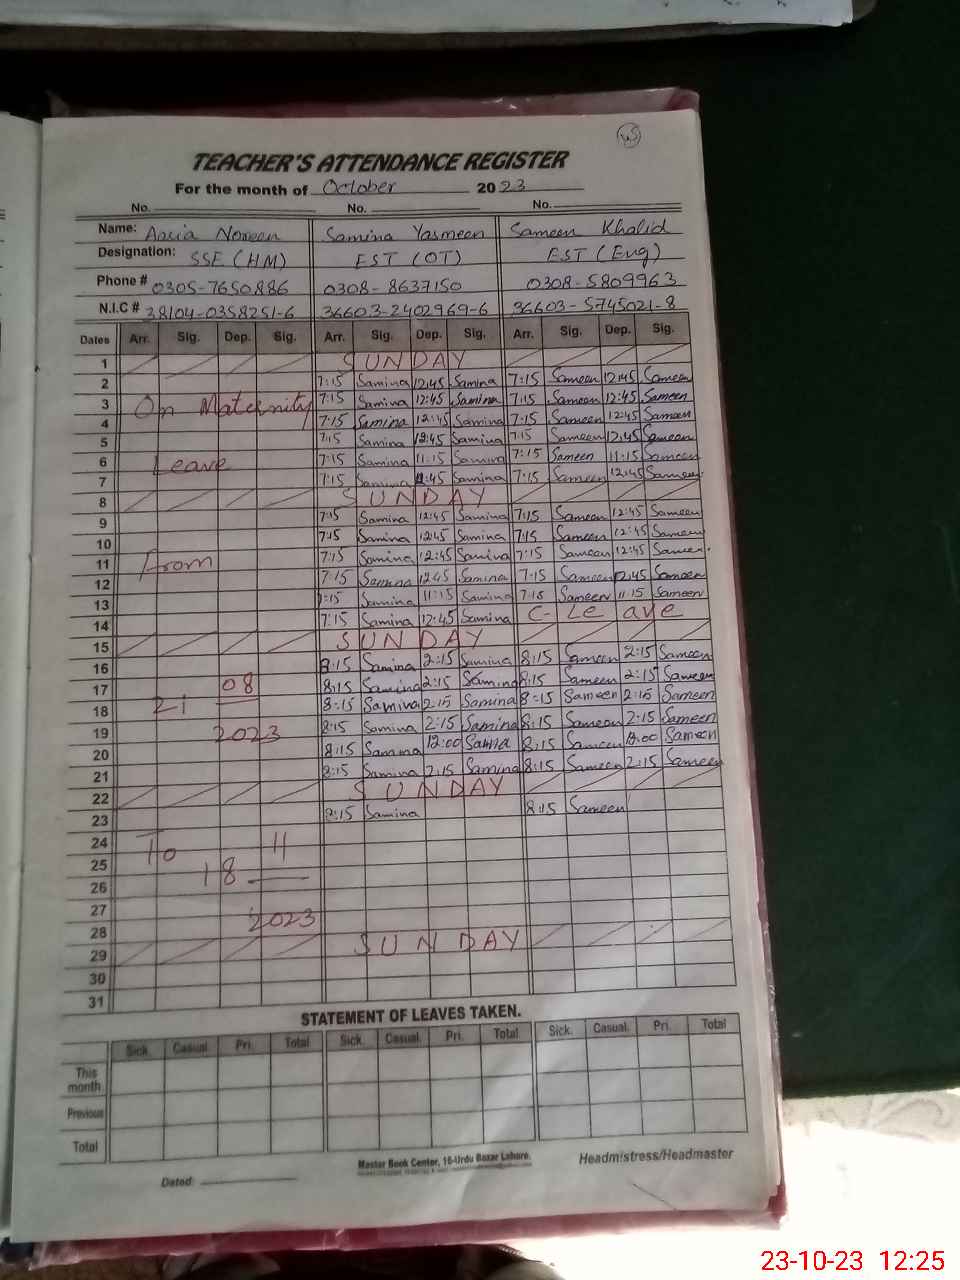 WS
TEACHER'S ATTENDANCE REGISTER
For the month of October 2023
No. No. No.
Name: Asia Noreen Samina Yasmeen Sameen Khalid
Designation: SSE (HM) EST (OT) EST (Eng)
Phone # 0305-7650886 0308-8637150 0308-5809963
N.I.C # 38104-0358251-6 36603-2402969-6 36603-5745021-8
Dates Arr. Sig. Dep. Sig. Arr. Sig. Dep. Sig. Arr. Sig. Dep. Sig.
1 SUNDAY
2 7:15 Samina 12:45 Samina 7:15 Sameen 12:45 Sameen
3 On Maternity 7:15 Samina 12:45 Samina 7:15 Sameen 12:45 Sameen
4 7:15 Samina 12:45 Samina 7:15 Sameen 12:45 Sameen
5 7:15 Samina 12:45 Samina 7:15 Sameen 12:45 Sameen
6 Leave 7:15 Samina 11:15 Samina 7:15 Sameen 11:15 Sameen
7 7:15 Samina Samina 7:15 Sameen 12:45 Sameen
8 SUNDAY
9 7:15 Samina 12:45 Samina 7:15 Sameen 12:45 Sameen
10 7:15 Samina 12:45 Samina 7:15 Sameen 12:45 Sameen
11 From 7:15 Samina 12:45 Samina 7:15 Sameen 12:45 Sameen
12 7:15 Samina 12:45 Samina 7:15 Sameen 12:45 Sameen
13 7:15 Samina 11:15 Samina 7:15 Sameen 11:15 Sameen
14 7:15 Samina 12:45 Samina C-Leave
15 SUNDAY
16 8:15 Samina 2:15 Samina 8:15 Sameen 2:15 Sameen
17 08 8:15 Samina 2:15 Samina 8:15 Sameen 2:15 Sameen
18 21 8:15 Samina 2:15 Samina 8:15 Sameen 2:15 Sameen
19 2023 8:15 Samina 2:15 Samina 8:15 Sameen 2:15 Sameen
20 8:15 Samina 12:00 Samina 8:15 Sameen 12:00 Sameen
21 8:15 Samina 2:15 Samina 8:15 Sameen 2:15 Sameen
22 SUNDAY
23 8:15 Samina 8:15 Sameen
24 To 11
25 18
26
27
28 2023
29 SUNDAY
30
31
STATEMENT OF LEAVES TAKEN.
Sick. Casual. Pri. Total Sick. Casual. Pri. Total Sick. Casual. Pri. Total
This month
Previous
Total
Master Book Center, 16-Urdu Bazar Lahore.
Headmistress/Headmaster
Dated:
23-10-23 12:25